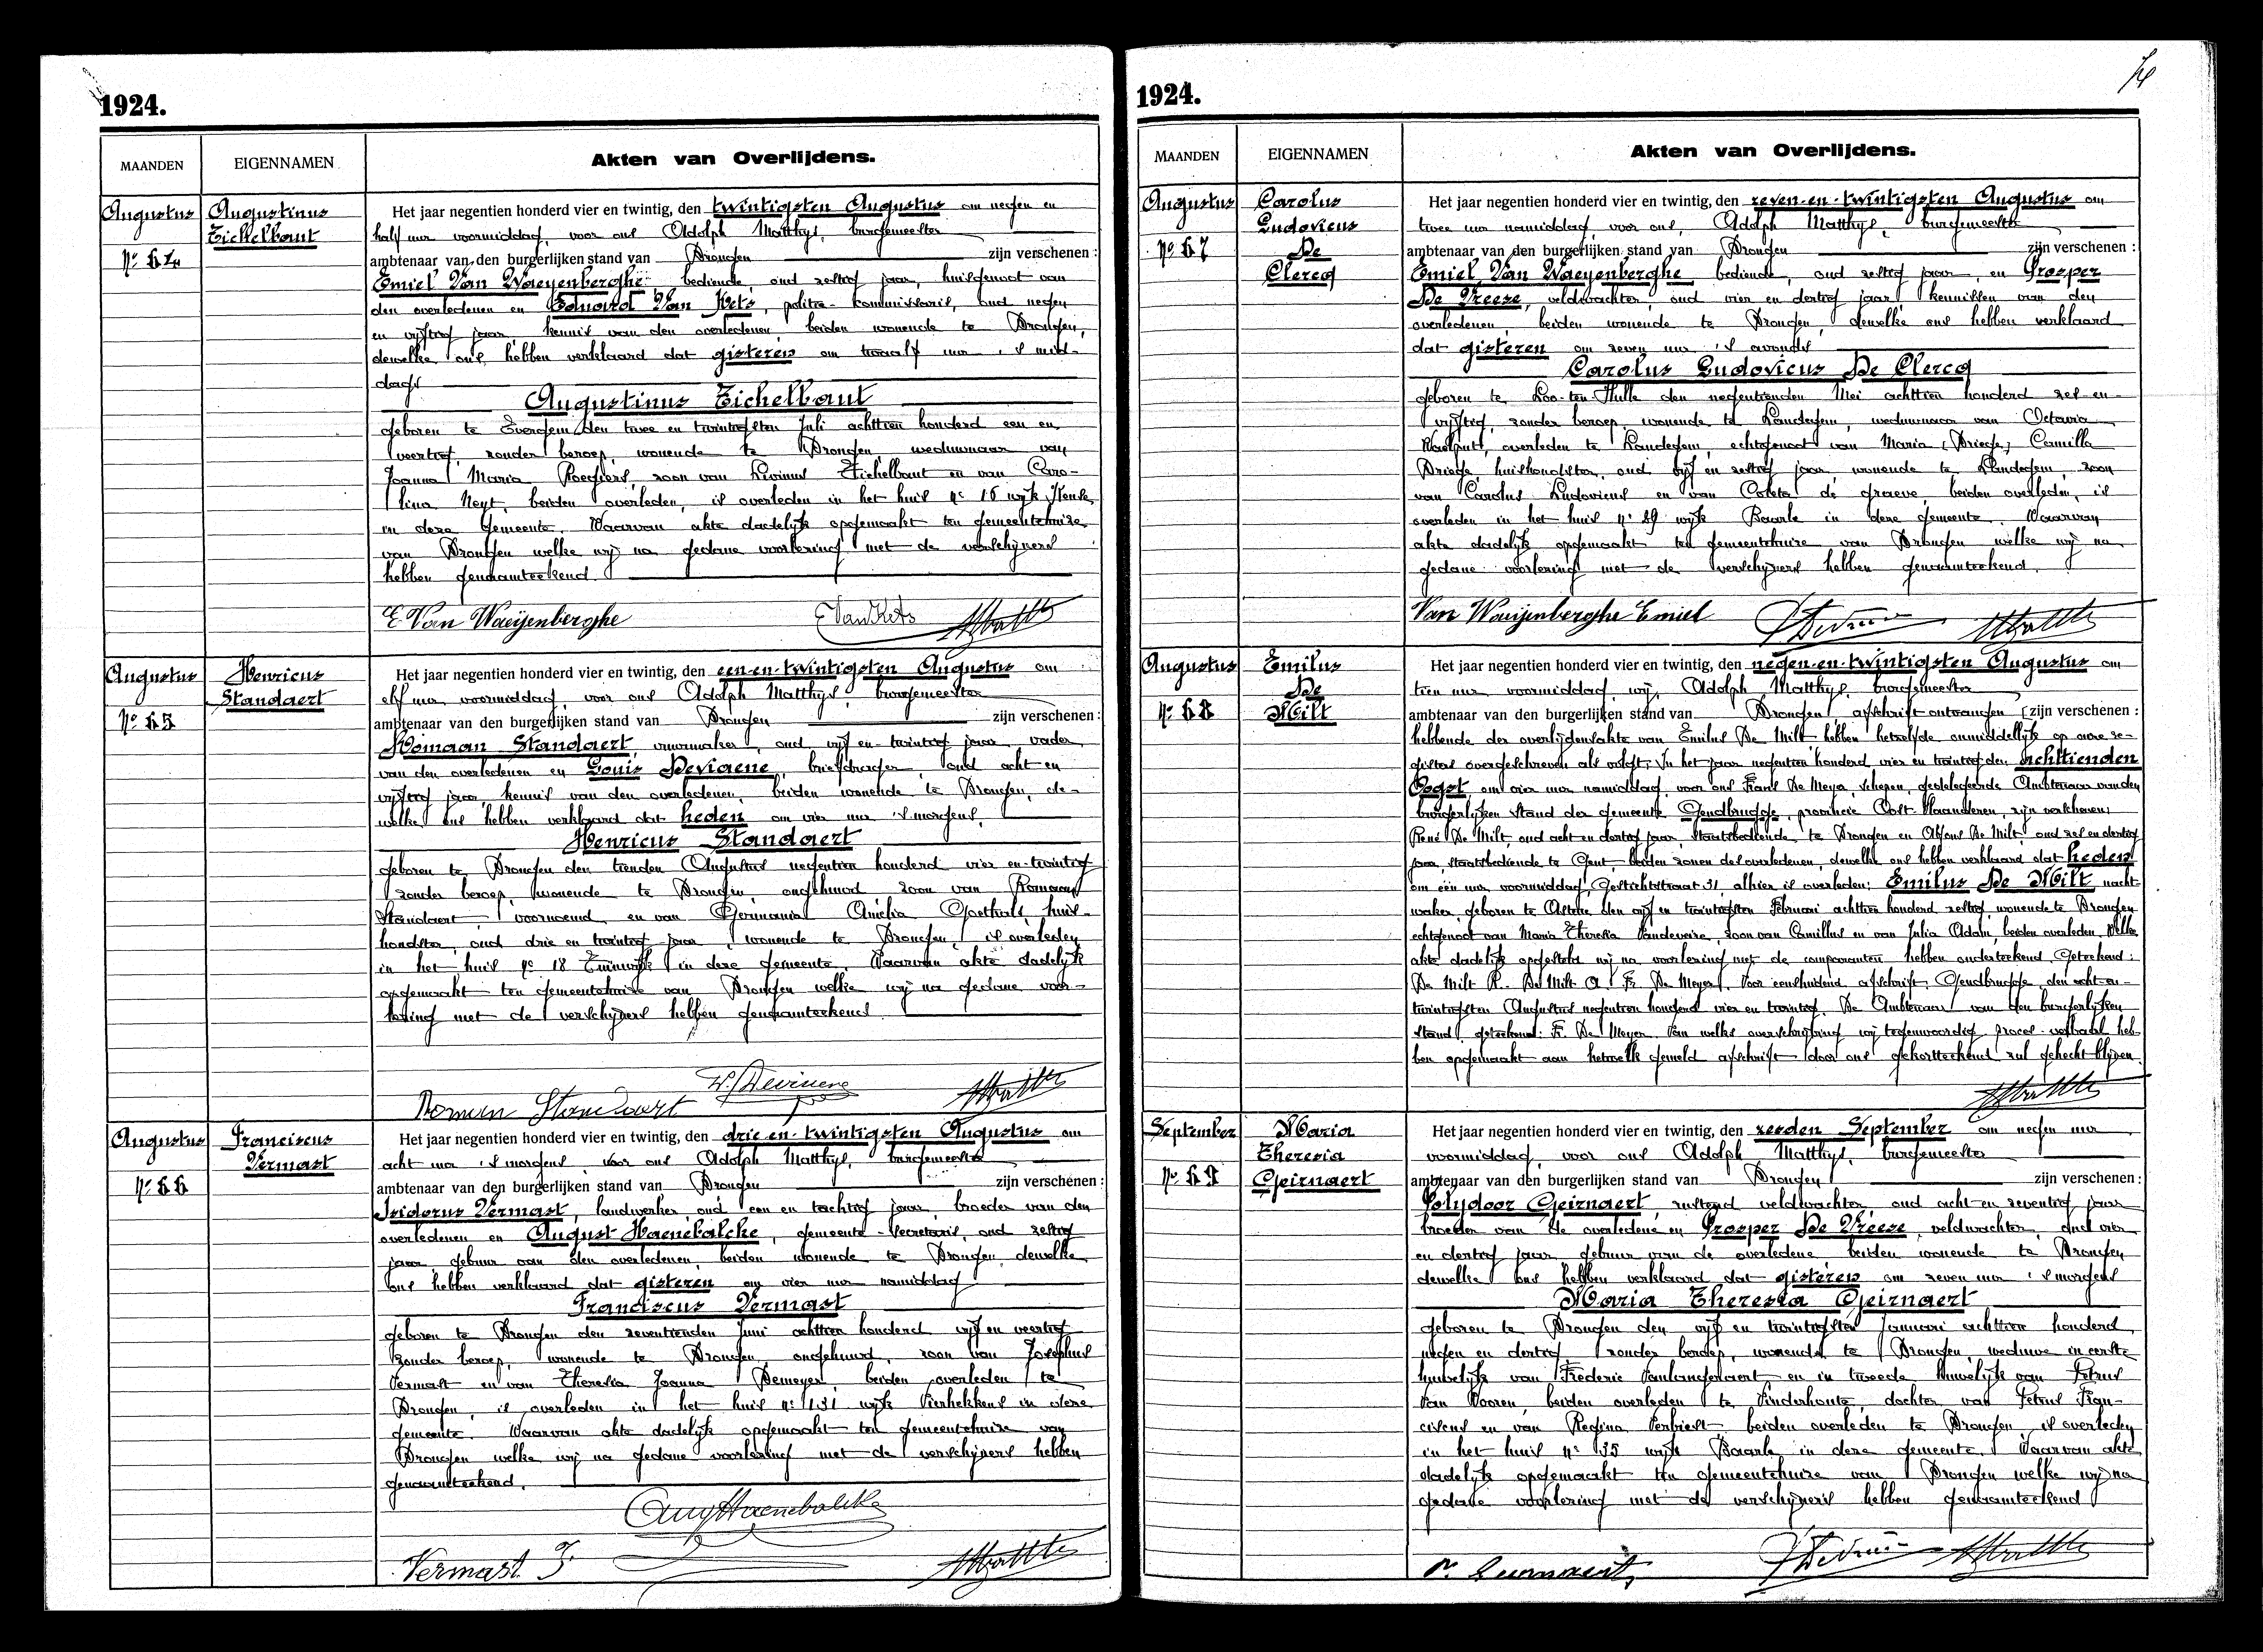 1924.
MAANDEN
EIGENNAMEN
Akten van Overlijdens.
Augustus
Nr 64
Augustinus
Eichelbaut
Het jaar negentien honderd vier en twintig, den twintigsten Augustus om negen en
half uur voormiddag, voor ons Adolph Matthys, burgemeester
ambtenaar van den burgerlijken stand van Drongen zijn verschenen:
Emiel Van Waeyenberghe bediende, oud zestig jaar, huisgenoot van
den overledenen en Eduard Van Kets, politie-kommissaris, oud negen
en vijftig jaar, kennis van den overledenen, beiden wonende te Drongen,
dewelke ons hebben verklaard dat gisteren om twaalf uur 's mid-
dags
Augustinus Eichelbaut
geboren te Evergem den twee en twintigsten Juli achttien honderd een en
veertig, zonder beroep, wonende te Drongen, weduwnaar van
Joanna Maria Roegiers, zoon van Livinus Eichelbaut en van Caro-
lina Neyt, beiden overleden, is overleden in het huis nr 16 wijk
in deze gemeente. Waarvan akte dadelijk opgemaakt ten gemeentehuize
van Drongen welke wij na gedane voorlezing met de verschijners
hebben genaamteekend.
E. Van Waeyenberghe E Van Kets AMatthys
Augustus
Nr 65
Henricus
Standaert
Het jaar negentien honderd vier en twintig, den een-en-twintigsten Augustus om
elf uur voormiddag, voor ons Adolph Matthys, burgemeester
ambtenaar van den burgerlijken stand van Drongen zijn verschenen:
Romaan Standaert, vuurmaker, oud vijf-en-twintig jaar, vader
van den overledenen en Louis Deviaene, briefdrager, oud acht en
vijftig jaar, kennis van den overledenen, beiden wonende te Drongen, de-
welke ons hebben verklaard dat heden om vier uur 's morgens,
Henricus Standaert
geboren te Drongen den tienden Augustus negentien honderd vier-en-twintig
zonder beroep, wonende te Drongen, ongehuwd, zoon van Romaan
Standaert, voornoemd, en van Germania Amelia Goethals, huis-
houdster, oud drie en twintig jaar, wonende te Drongen, is overleden
in het huis nr 18 in deze gemeente. Waarvan akte dadelijk
opgemaakt ten gemeentehuize van Drongen welke wij na gedane voor-
lezing met de verschijners hebben genaamteekend.
Romaan Standaert Deviaene AMatthys
Augustus
Nr 66
Franciscus
Vermast
Het jaar negentien honderd vier en twintig, den drie-en-twintigsten Augustus om
acht uur 's morgens, voor ons Adolph Matthys, burgemeester
ambtenaar van den burgerlijken stand van Drongen zijn verschenen:
Isidorus Vermast, landwerker, oud een en tachtig jaar, broeder van den
overledenen en August Haenebalcke, gemeente-secretaris, oud zestig
jaar, gebuur van den overledenen, beiden wonende te Drongen, dewelke
ons hebben verklaard dat gisteren om vier uur namiddag
Franciscus Vermast
geboren te Drongen den zeventienden Juni achttien honderd vijf en veertig
zonder beroep, wonende te Drongen, ongehuwd, zoon van Josephus
Vermast en van Theresia Joanna Demeyer, beiden overleden te
Drongen, is overleden in het huis nr 131 wijk Vierhekkens in deze
gemeente. Waarvan akte dadelijk opgemaakt ten gemeentehuize van
Drongen welke wij na gedane voorlezing met de verschijners hebben
genaamteekend.
Aug Haenebalcke
Vermast I AMatthys
1924.
MAANDEN
EIGENNAMEN
Akten van Overlijdens.
Augustus
Nr 67
Carolus
Ludovicus
De
Clercq
Het jaar negentien honderd vier en twintig, den zeven-en-twintigsten Augustus om
twee uur namiddag, voor ons, Adolph Matthys, burgemeester
ambtenaar van den burgerlijken stand van Drongen zijn verschenen:
Emiel Van Waeyenberghe bediende, oud zestig jaar, en Prosper
De Vreese, veldwachter, oud vier en dertig jaar, kennissen van den
overledenen, beiden wonende te Drongen, dewelke ons hebben verklaard
dat gisteren om zeven uur 's avonds
Carolus Ludovicus De Clercq
geboren te Loo-ten-Hulle den negentienden Mei achttien honderd zes-en-
vijftig, zonder beroep, wonende te Landegem, weduwnaar van Octavia
Waelput, overleden te Landegem, echtgenoot van Maria Camilla
Drieghe, huishoudster, oud vijf en zestig jaar, wonende te Landegem, zoon
van Carolus Ludovicus en van Coleta de Graeve, beiden overleden, is
overleden in het huis nr 29 wijk Baarle in deze gemeente. Waarvan
akte dadelijk opgemaakt ten gemeentehuize van Drongen welke wij na
gedane voorlezing met de verschijners hebben genaamteekend.
Van Waeyenberghe Emiel AMatthys
Augustus
Nr 68
Emilus
De
Milt
Het jaar negentien honderd vier en twintig, den negen-en-twintigsten Augustus om
tien uur voormiddag, wij, Adolph Matthys, burgemeester
ambtenaar van den burgerlijken stand van Drongen afschrift ontvangen zijn verschenen:
hebbende der overlijdensakte van Emilus De Milt hebben hetzelfde onmiddellijk op onze re-
gisters overgeschreven als volgt: In het jaar negentien honderd vier en twintig, den achttienden
Oogst, om vier uur namiddag, voor ons Frans De Meyer, schepen, gedelegeerde Ambtenaar van den
burgerlijken Stand der gemeente Gendbrugge, provincie Oost-Vlaanderen, zijn verschenen:
René De Milt, oud acht en dertig jaar, Staatsbediende, te Drongen en Alfons De Milt, oud zes en dertig
jaar, staatsbediende te Gent, beiden zonen des overledenen, dewelke ons hebben verklaard dat heden
om één uur voormiddag, Gestichtstraat 31, alhier is overleden: Emilus De Milt, nacht-
waker, geboren te Astene den vijf en twintigsten Februari achttien honderd zestig, wonende te Drongen
echtgenoot van Maria Theresia Vandeveire, zoon van Camillus en van Julia Adam, beiden overleden. Welke
akte dadelijk opgesteld wij na voorlezing met de comparanten hebben onderteekend. Geteekend:
De Milt R. De Milt A. Fr. De Meyer. Voor eensluidend afschrift. Gendbrugge, den acht-en-
twintigsten Augustus negentien honderd vier en twintig. De Ambtenaar van den burgerlijken
stand, geteekend: Fr. De Meyer. Van welke overschrijving wij tegenwoordig proces-verbaal heb-
ben opgemaakt aan hetwelk gemeld afschrift door ons gekortteekend zal gehecht blijven.
AMatthys
September
Nr 69
Maria
Theresia
Geirnaert
Het jaar negentien honderd vier en twintig, den zesden September om negen uur
voormiddag, voor ons Adolph Matthys, burgemeester
ambtenaar van den burgerlijken stand van Drongen zijn verschenen:
Polydoor Geirnaert, rustend veldwachter, oud acht en zeventig jaar
broeder van de overledene en Prosper De Vreese, veldwachter, oud vier
en dertig jaar, gebuur van de overledene, beiden wonende te Drongen
dewelke ons hebben verklaard dat gisteren om zeven uur 's morgens
Maria Theresia Geirnaert
geboren te Drongen den vijf en twintigsten Januari achttien honderd
negen en dertig, zonder beroep, wonende te Drongen, weduwe in eerste
huwelijk van Frederic Vanlangenhaert en in tweede huwelijk van Petrus
Van Vooren, beiden overleden te Vinderhoute, dochter van Petrus Fran-
ciscus en van Regina Verbiest, beiden overleden te Drongen, is overleden
in het huis nr 35 wijk Baarle in deze gemeente. Waarvan akte
dadelijk opgemaakt ten gemeentehuize van Drongen welke wij na
gedane voorlezing met de verschijners hebben genaamteekend
P. Geirnaert AMatthys